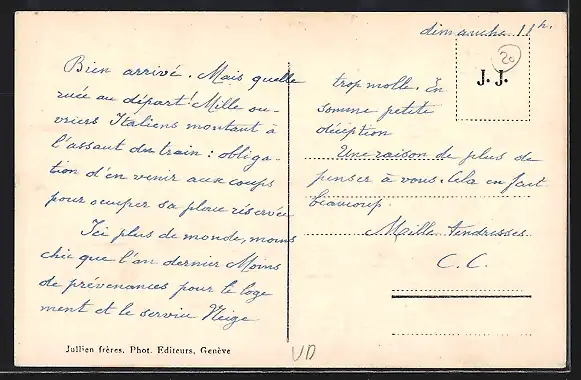 dimanche 11h.
20
J. J.
Bien arrivé. Mais quelle
ruée au départ! Mille ou-
vriers Italiens montant à
l'assaut du train : obliga-
tion d'en venir aux coups
pour occuper sa place réservée
Ici plus de monde, moins
chic que l'an dernier Moins
de prévenances pour le loge
ment et le service Neige
trop molle. En
somme petite
déception
Une raison de plus de
penser à vous. Cela en fait
beaucoup.
Mille tendresses
C. C.
Jullien frères, Phot. Editeurs, Genève
VD